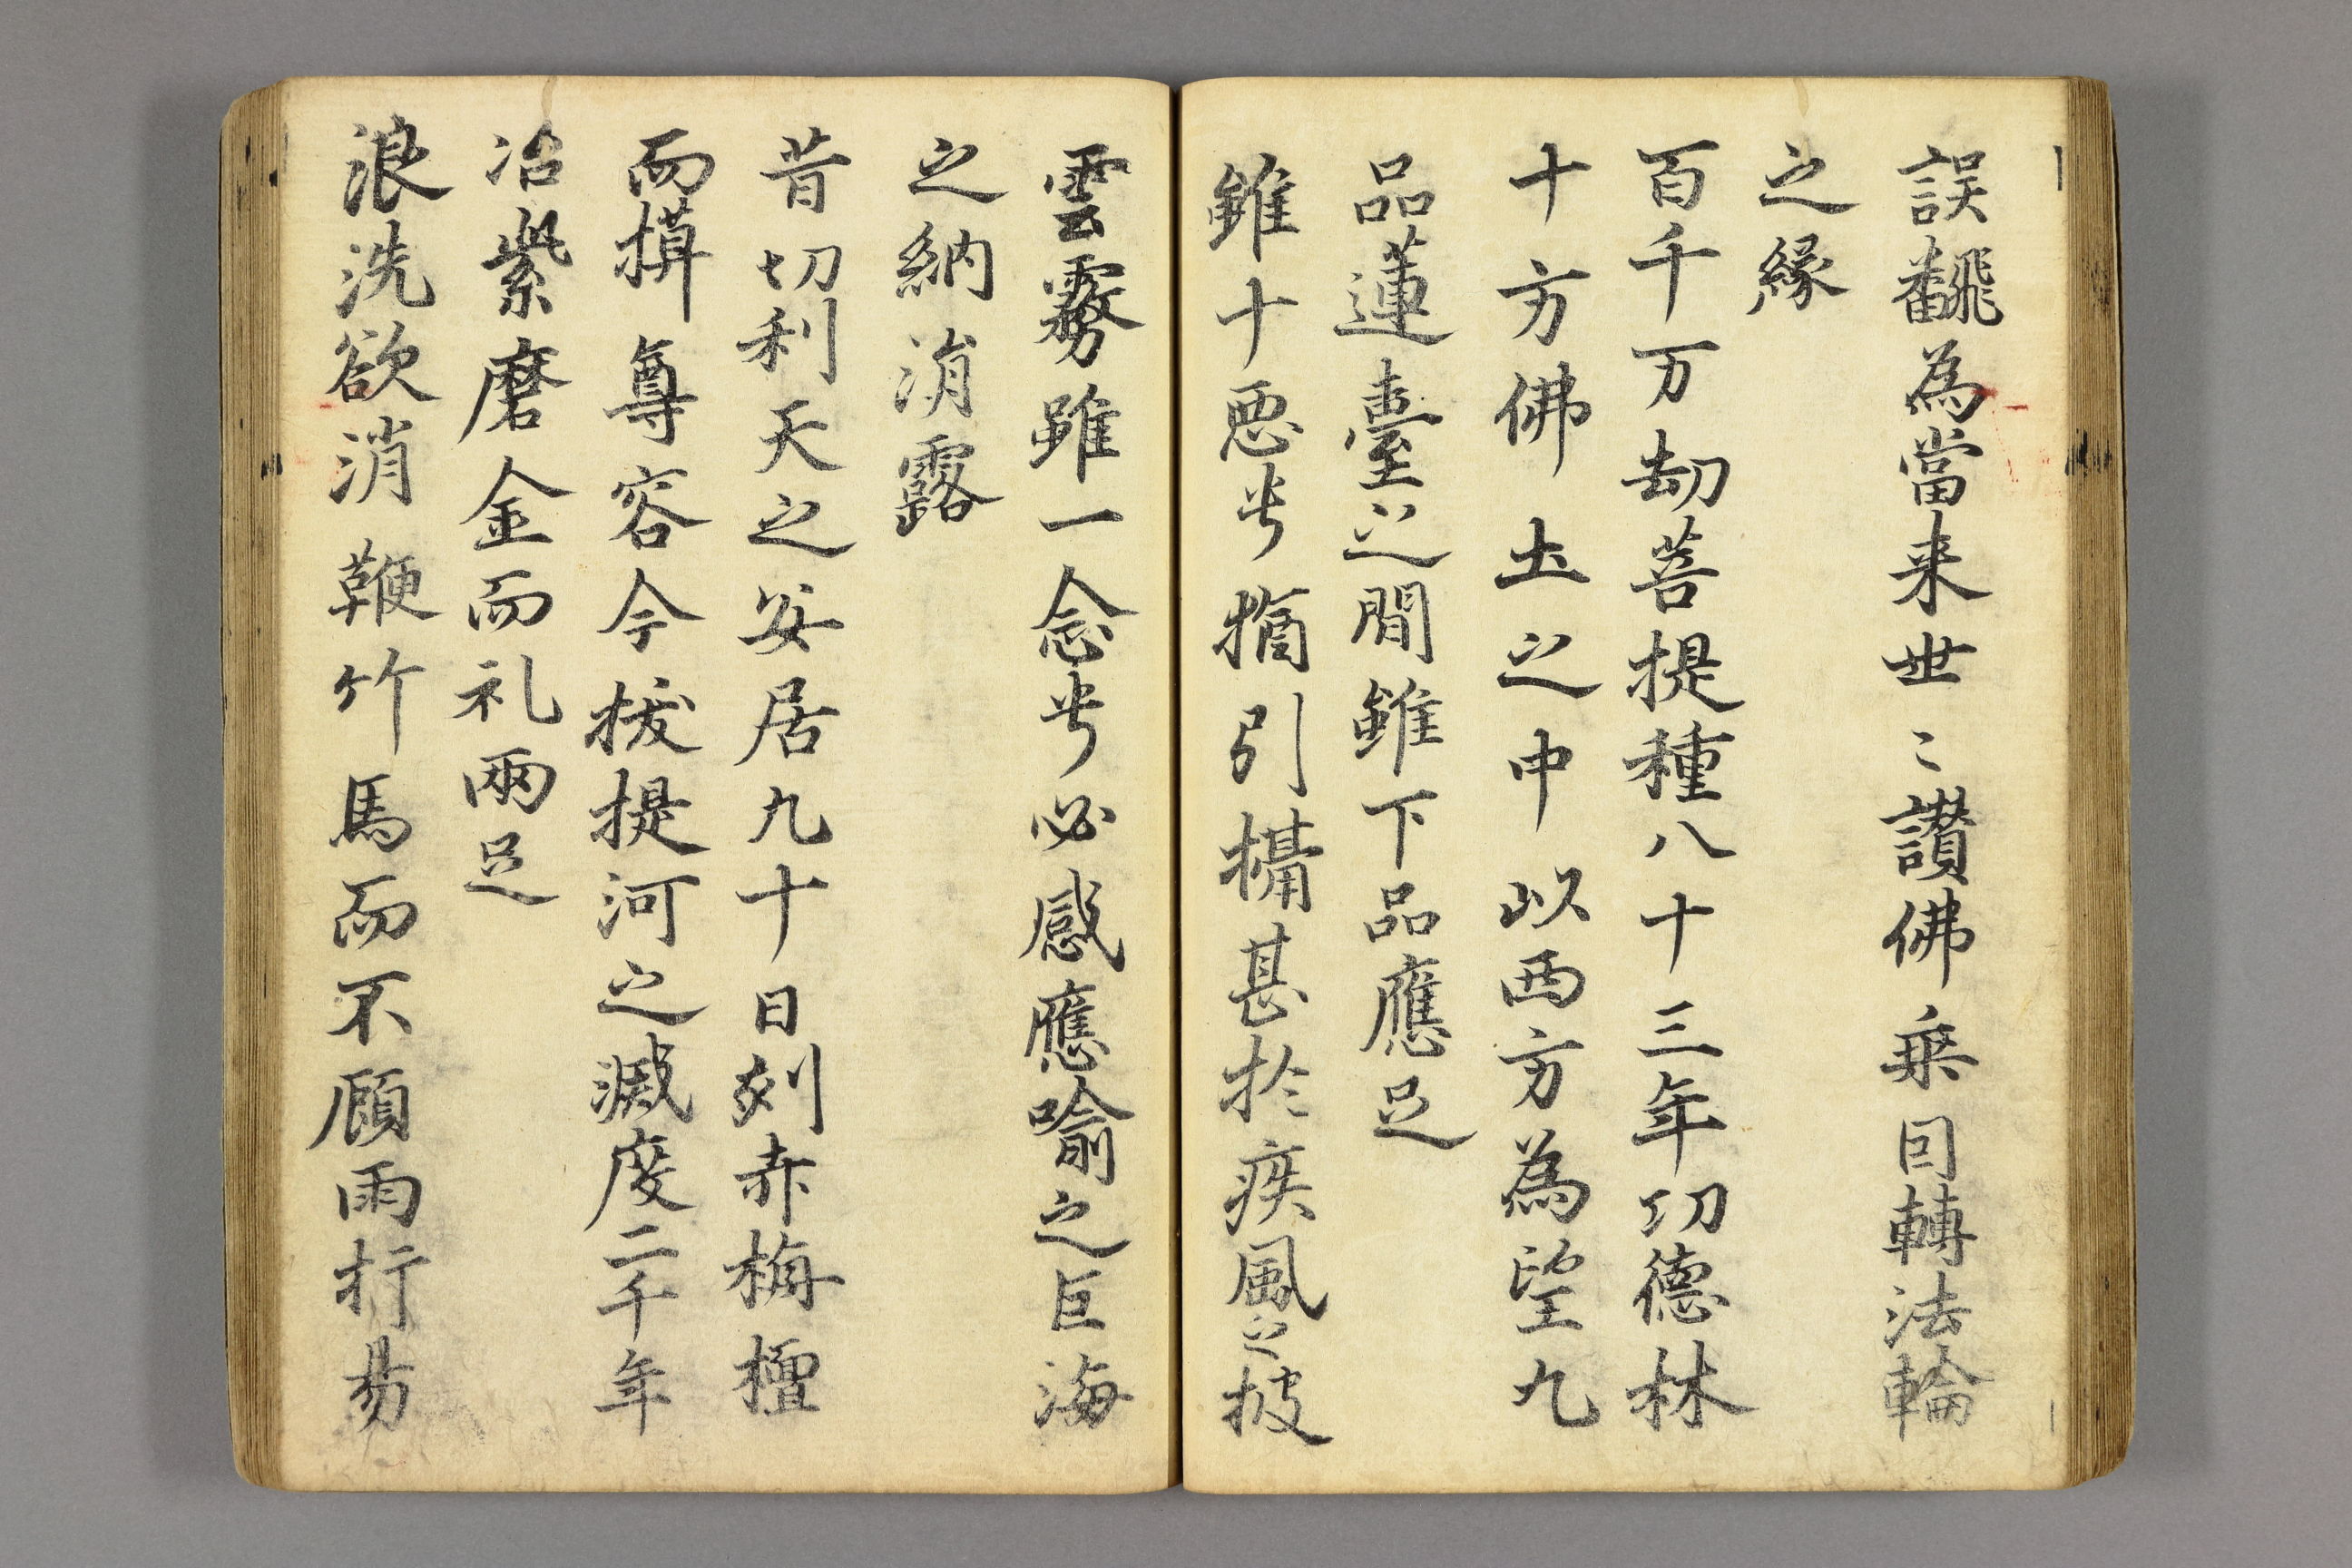 誤飜為當来世〻讃佛乗因轉法輪
之緣
百千万劫菩提種八十三年功德林
十方佛土之中以西方為望九
品蓮臺之間雖下品應足
雖十惡兮猶引攝甚於疾風之披
雲霧雖一念兮必感應喻之巨海
之納涓露
昔忉利天之安居九十日刻赤栴檀
而摸尊容今拔提河之滅度二千年
冶紫磨金而礼兩足
浪洗欲消鞭竹馬而不顧雨打易